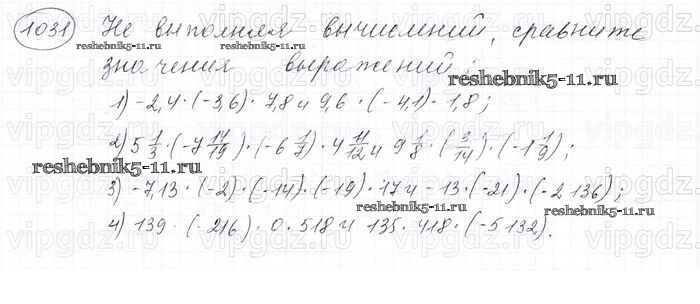 1031 Не выполняя вычислений, сравните
reshebnik5-11.ru
reshebnik5-11.ru
значения выражений:
reshebnik5-11.ru
1) -2,4·(-3,6)·7,8 и 9,6·(-4,1)·1,8;
2) 5 1/3·(-7 14/19)·(-6 1/7)·4 11/12 и 9 1/8·(3/14)·(-1 1/9);
reshebnik5-11.ru
3) -7,13·(-2)·(-14)·(-19)·17 и -13·(-21)·(-2 136);
reshebnik5-11.ru
reshebnik5-11.ru
4) 139·(-216)·0·518 и 135·418·(-5132).